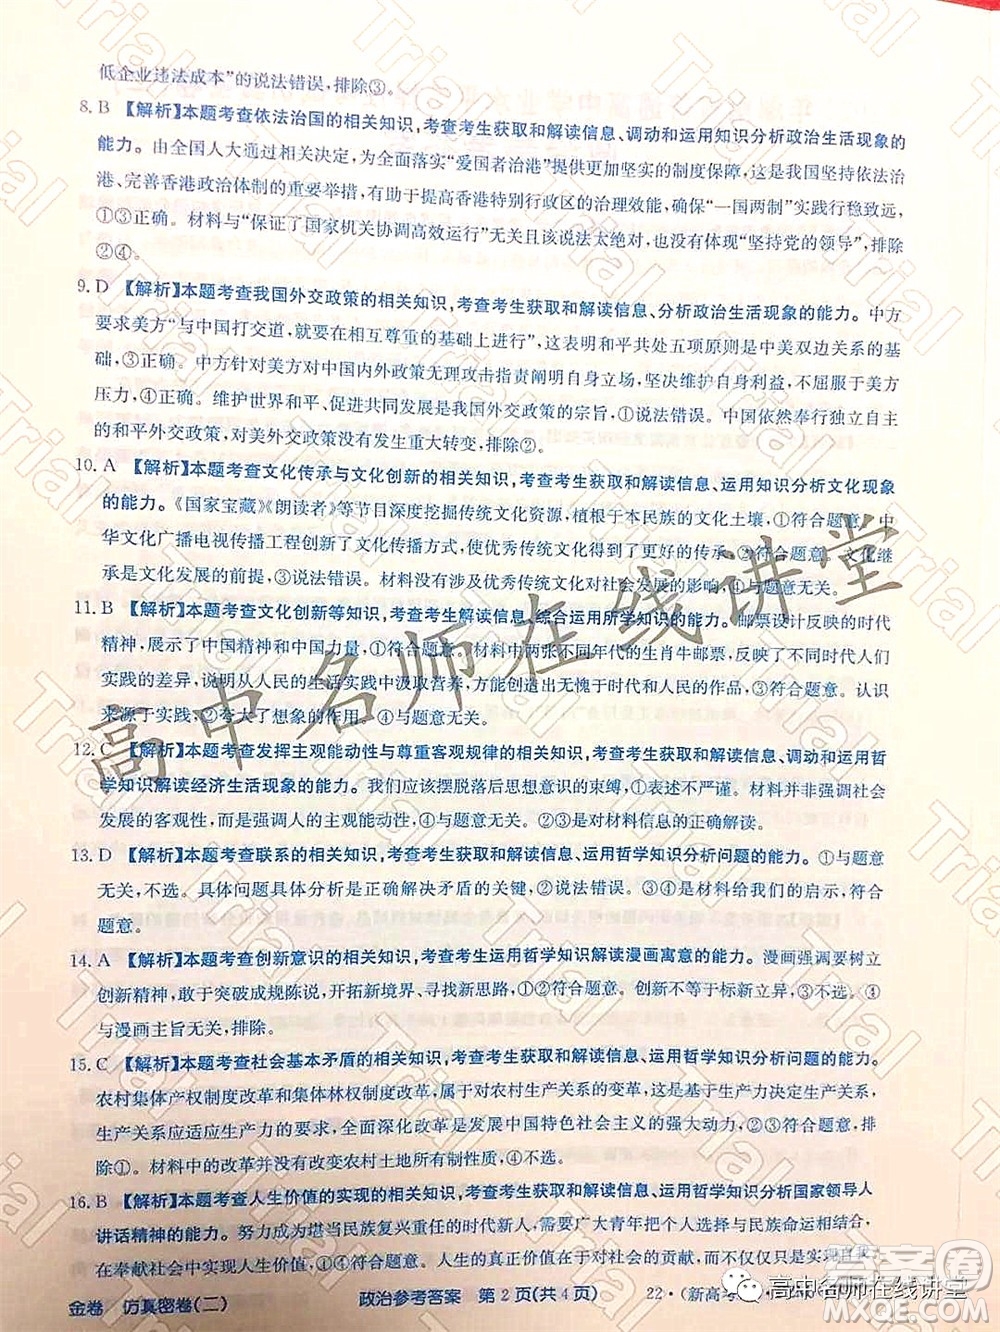 低企业违法成本”的说法错误,排除③。
8. B 【解析】本题考查依法治国的相关知识,考查考生获取和解读信息、调动和运用知识分析政治生活现象的
能力。由全国人大通过相关决定,为全面落实“爱国者治港”提供更加坚实的制度保障,是坚持依法治
港、完善香港政治体制的重要举措,有助于提高香港特别行政区的治理效能,确保“一国两制”实践行稳致远,
①③正确。材料与“保证了国家机关协调高效运行”无关且该说法太绝对,也没有体现“坚持党的领导”,排除
②④。
9. D 【解析】本题考查我国外交政策的相关知识,考查考生获取和解读信息、分析政治生活现象的能力。中方
要求美方“与中国打交道,就要在相互尊重的基础上进行”,这表明和平共处五项原则是中美双边关系的基
础,③正确。中方针对美方对中国内外政策无理攻击指责阐明自身立场,坚决维护自身利益,不屈服于美方
压力,④正确。维护世界和平、促进共同发展是我国外交政策的宗旨,①说法错误。中国依然奉行独立自主
的和平外交政策,对美外交政策没有发生重大转变,排除②。
10. A 【解析】本题考查文化传承与文化创新的相关知识,考查考生获取和解读信息、运用知识分析文化现象
的能力。《国家宝藏》《朗读者》等节目深度挖掘传统文化资源,植根于本民族的文化土壤,①符合题意。中
华文化广播电视传播工程创新了文化传播方式,使优秀传统文化得到了更好的传播,②符合题意。文化继
承是文化发展的前提,③说法错误。材料没有涉及优秀传统文化对社会发展的影响,④与题意无关。
11. B 【解析】本题考查文化创新等知识,考查考生解读信息、综合运用所学知识的能力。邮票设计反映的时代
精神,展示了中国精神和中国力量,①符合题意。材料中两张不同年代的生肖牛邮票,反映了不同时代人们
实践的差异,说明从人民的生活实践中汲取营养,方能创作出无愧于时代和人民的作品,③符合题意。认识
来源于实践,②夸大了想象的作用。④与题意无关。
12. C 【解析】本题考查发挥主观能动性与尊重客观规律的相关知识,考查考生获取和解读信息、调动和运用哲
学知识解读经济生活现象的能力。我们应该摆脱落后思想意识的束缚,①表述不严谨。材料并非强调社会
发展的客观性,而是强调人的主观能动性,④与题意无关。②③是对材料信息的正确解读。
13. D 【解析】本题考查联系的相关知识,考查考生获取和解读信息、运用哲学知识分析问题的能力。①与题意
无关,不选。具体问题具体分析是正确解决矛盾的关键,②说法错误。③④是材料给予我们的启示,符合
题意。
14. A 【解析】本题考查创新意识的相关知识,考查考生运用哲学知识解读漫画寓意的能力。漫画强调要树立
创新精神,敢于突破成规陈说,开拓新境界、寻求新思路,①②符合题意。创新不等于标新立异,③不选。④
与漫画主旨无关,排除。
15. C 【解析】本题考查社会基本矛盾的相关知识,考查考生获取和解读信息、运用哲学知识分析问题的能力。
农村集体产权制度改革和集体林权制度改革,属于对农村生产关系的变革,这是基于生产力决定生产关系,
生产关系应适应生产力的要求,②符合题意。全面深化改革是发展中国特色社会主义的强大动力,③正确,
排除①。材料中的改革并没有改变农村土地所有制性质,④不选。
16. B 【解析】本题考查人生价值的实现的相关知识,考查考生获取和解读信息、运用哲学知识分析国家领导人
讲话精神的能力。努力成为堪当民族复兴重任的时代新人,需要广大青年把个人选择与民族命运相结合,
在奉献社会中实现人生价值,①④符合题意。人生的真正价值在于对社会的贡献,而不仅仅在于实现自我
金卷 仿真密卷(二) 政治参考答案 第 2 页(共 4 页) 22·(新高考
高中名师在线讲堂
高中名师在线讲堂
答案圈
MXQE.COM
Trial